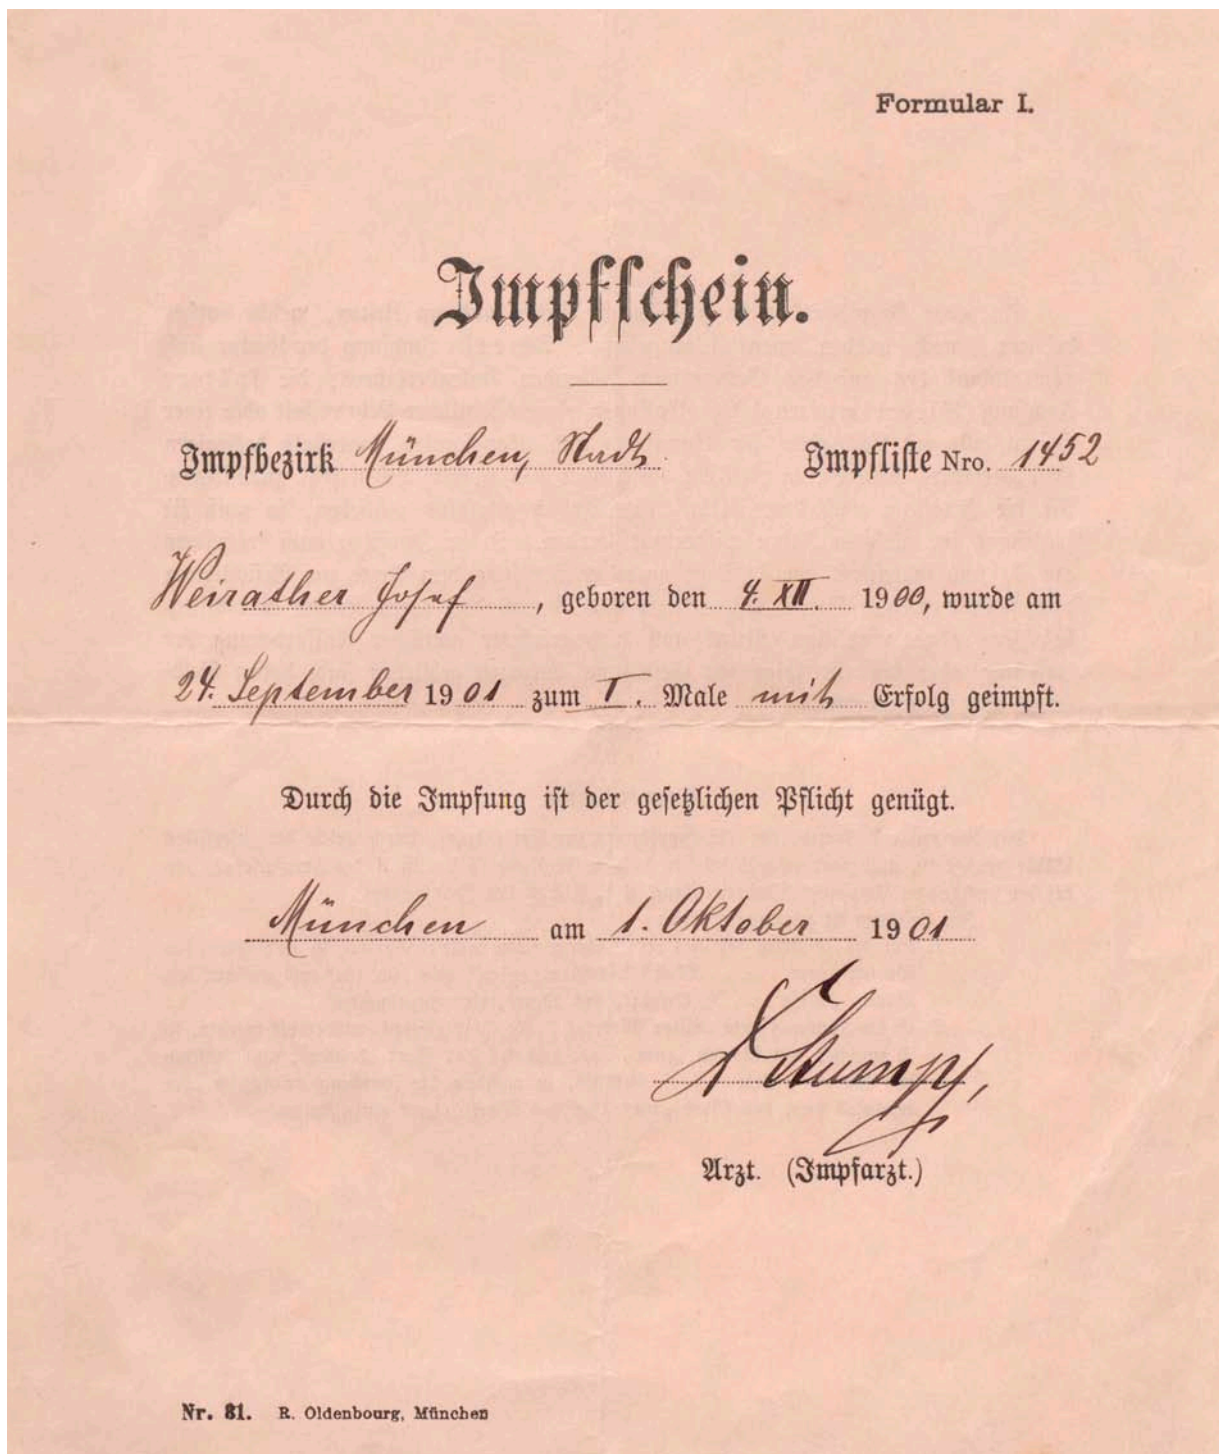 Formular I.
Impfschein.
Impfbezirk München, Stadt Impfliste Nro. 1452
Weirather Josef, geboren den 4. XII. 1900, wurde am
24. September 1901 zum I. Male mit Erfolg geimpft.
Durch die Impfung ist der gesetzlichen Pflicht genügt.
München am 1. Oktober 1901
Dr Stumpf,
Arzt. (Impfarzt.)
Nr. 81. R. Oldenbourg, München